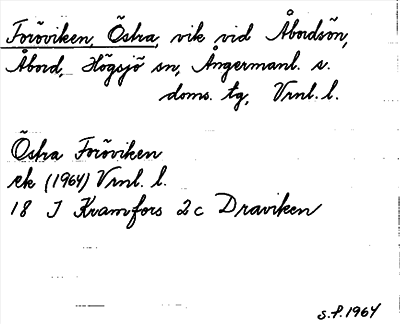 Foröviken, Östra, vik vid Åbordsön,
Åbord, Högsjö sn, Ångermanl. s.
doms. tg, Vrnl. l.
Östra Foröviken
ek (1964) Vrnl. l.
18 I Kramfors 2 c Draviken
s.f. 1964